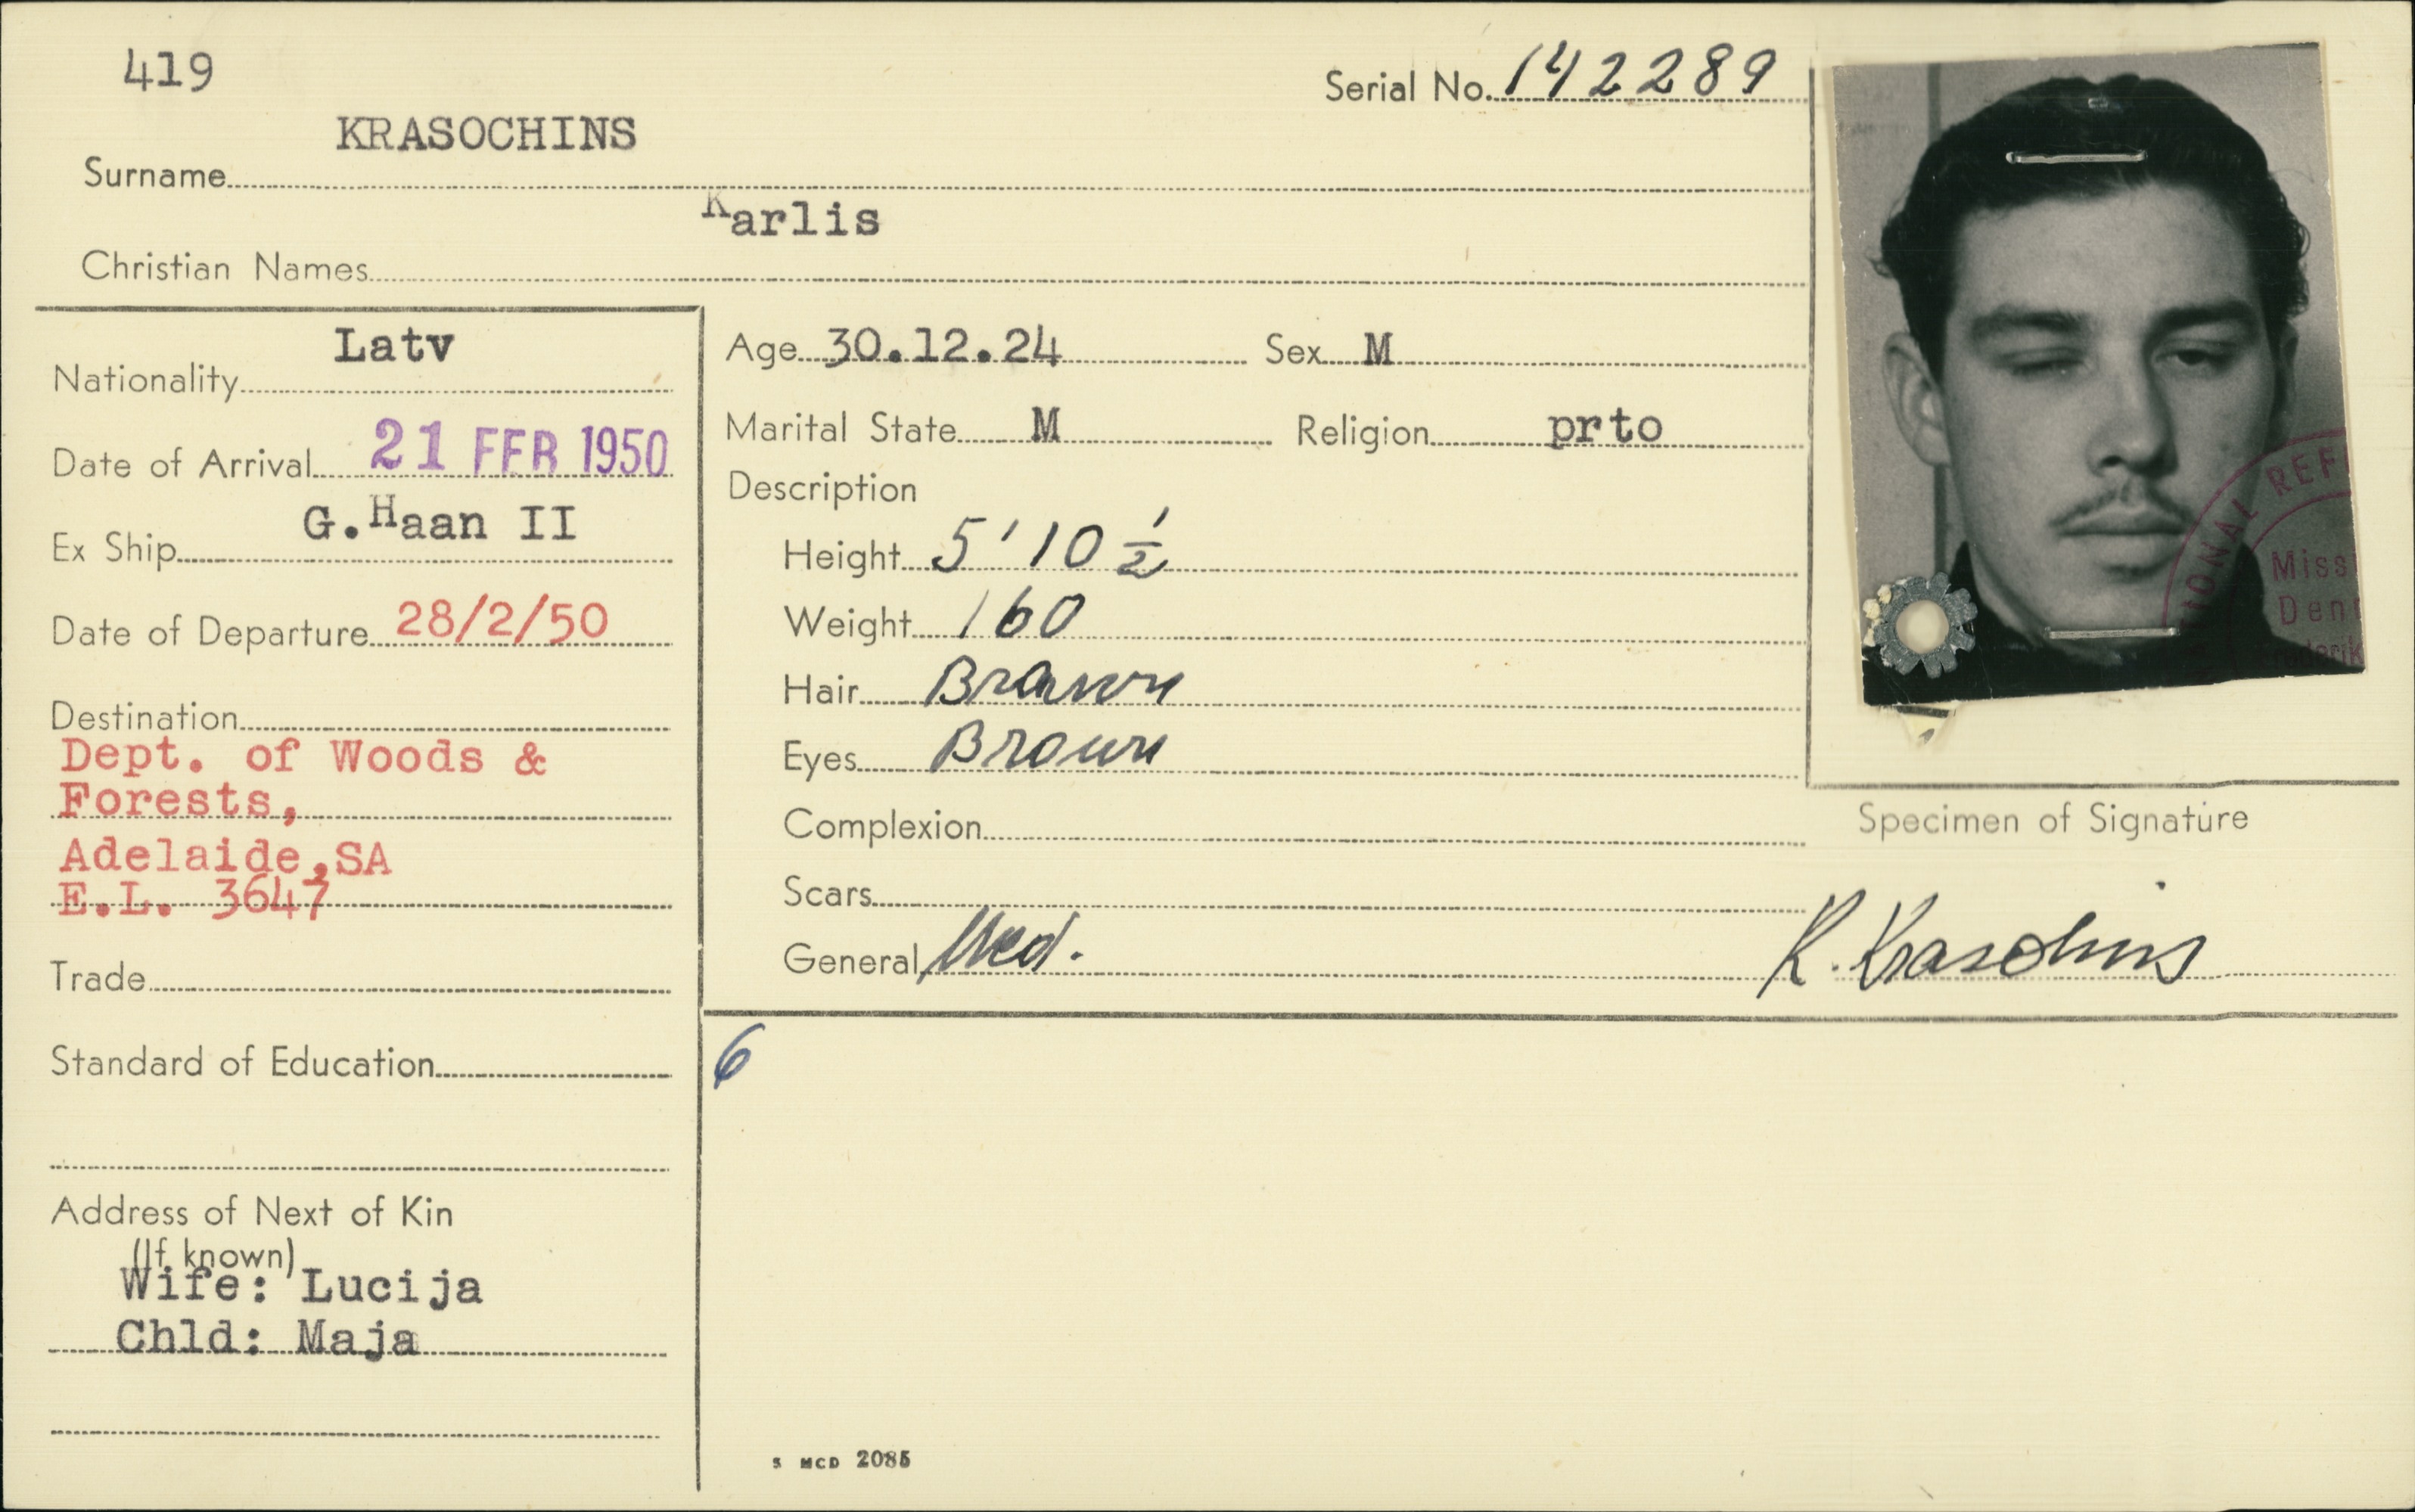 419
Serial No. 142289
KRASOCHINS
Surname
Karlis
Christian Names
Latv
Nationality
Date of Arrival 21 FEB 1950
G.Haan II
Ex Ship
Date of Departure 28/2/50
Destination
Dept. of Woods &
Forests,
Adelaide,SA
E.L. 3647
Trade
Standard of Education
Address of Next of Kin
(If known)
Wife: Lucija
Chld: Maja
Age 30.12.24 Sex M
Marital State M Religion prto
Description
Height 5' 10 1/2
Weight 160
Hair Brown
Eyes Brown
Complexion
Scars
General Med.
6
S MCD 2085
IONAL REF
Miss
Den
rederik
Specimen of Signature
K. Krasochins